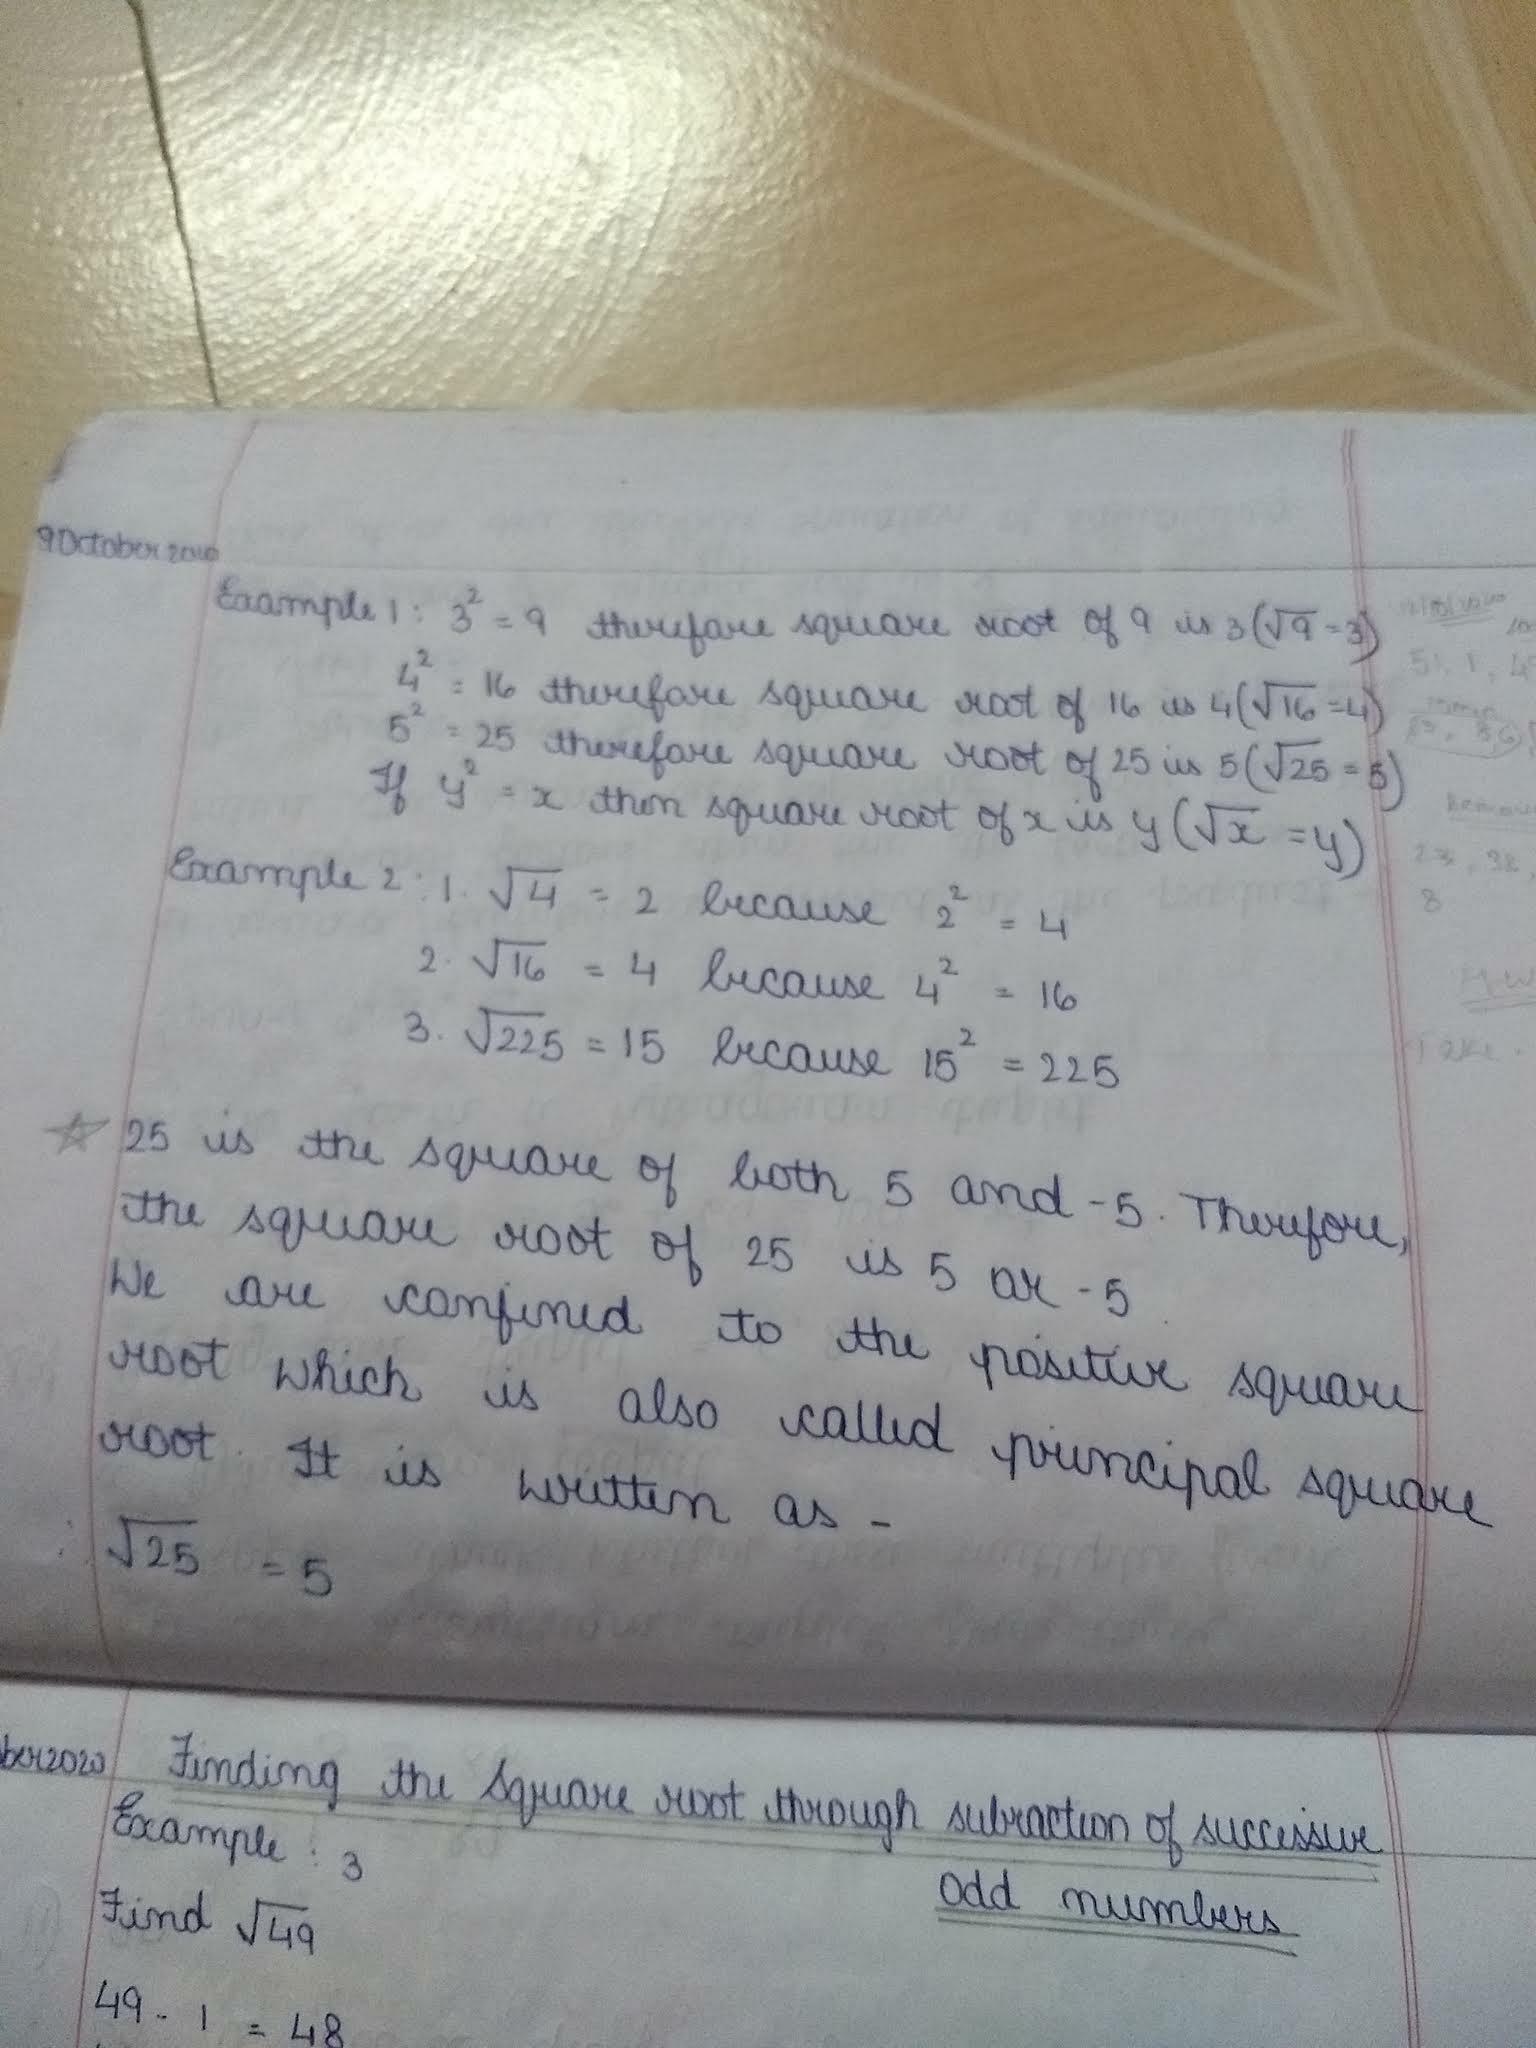 9 October 2020
Example 1: 3² = 9 therefore square root of 9 is 3(√9 = 3)
4² = 16 therefore square root of 16 is 4(√16 = 4)
5² = 25 therefore square root of 25 is 5(√25 = 5)
If y² = x then square root of x is y(√x = y)
Example 2: 1. √4 = 2 because 2² = 4
2. √16 = 4 because 4² = 16
3. √225 = 15 because 15² = 225
☆ 25 is the square of both 5 and -5. Therefore,
the square root of 25 is 5 or -5.
We are confined to the positive square
root which is also called principal square
root. It is written as -
√25 = 5
ber 2020 Finding the square root through subraction of successive
odd numbers
Example: 3
Find √49
49 - 1 = 48